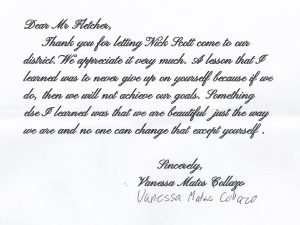 Dear Mr Fletcher,
Thank you for letting Nick Scott come to our
district. We appreciate it very much. A lesson that I
learned was to never give up on yourself because if we
do, then we will not achieve our goals. Something
else I learned was that we are beautiful just the way
we are and no one can change that except yourself .
Sincerely,
Vanessa Mates Collazo
Vanessa Mates Collazo